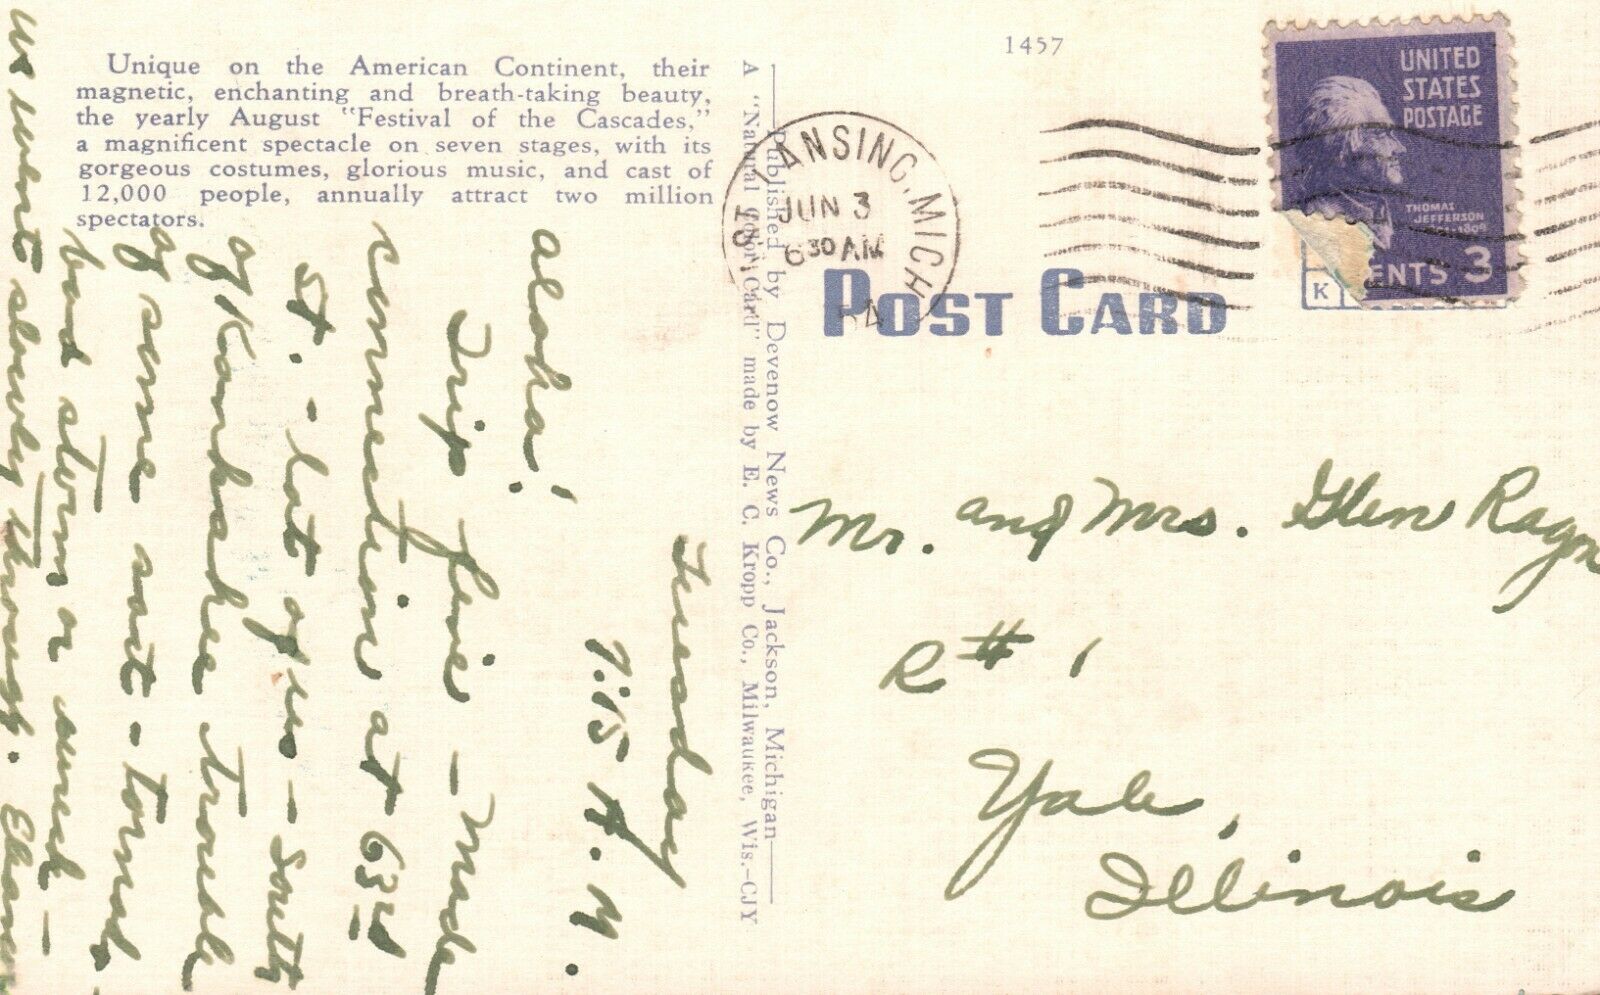 Unique on the American Continent, their
magnetic, enchanting and breath-taking beauty,
the yearly August "Festival of the Cascades,"
a magnificent spectacle on seven stages, with its
gorgeous costumes, glorious music, and cast of
12,000 people, annually attract two million
spectators.
Tuesday
7:15 A.M.
Aloha!
Trip fine - Made
connection at 63rd
St. - lot of us - South
of Kankakee trouble
of some sort - tornad
bad storm or such -
we went slowly through.
Published by Devenow News Co., Jackson, Michigan
A "Natural Color Card" made by E. C. Kropp Co., Milwaukee, Wis.-CJY
1457
E. LANSING, MICH
JUN 3
630 AM
54
UNITED
STATES
POSTAGE
THOMAS
JEFFERSON
ENTS 3
K
POST CARD
Mr. and Mrs. Glen Raym
R # 1
Yale,
Illinois